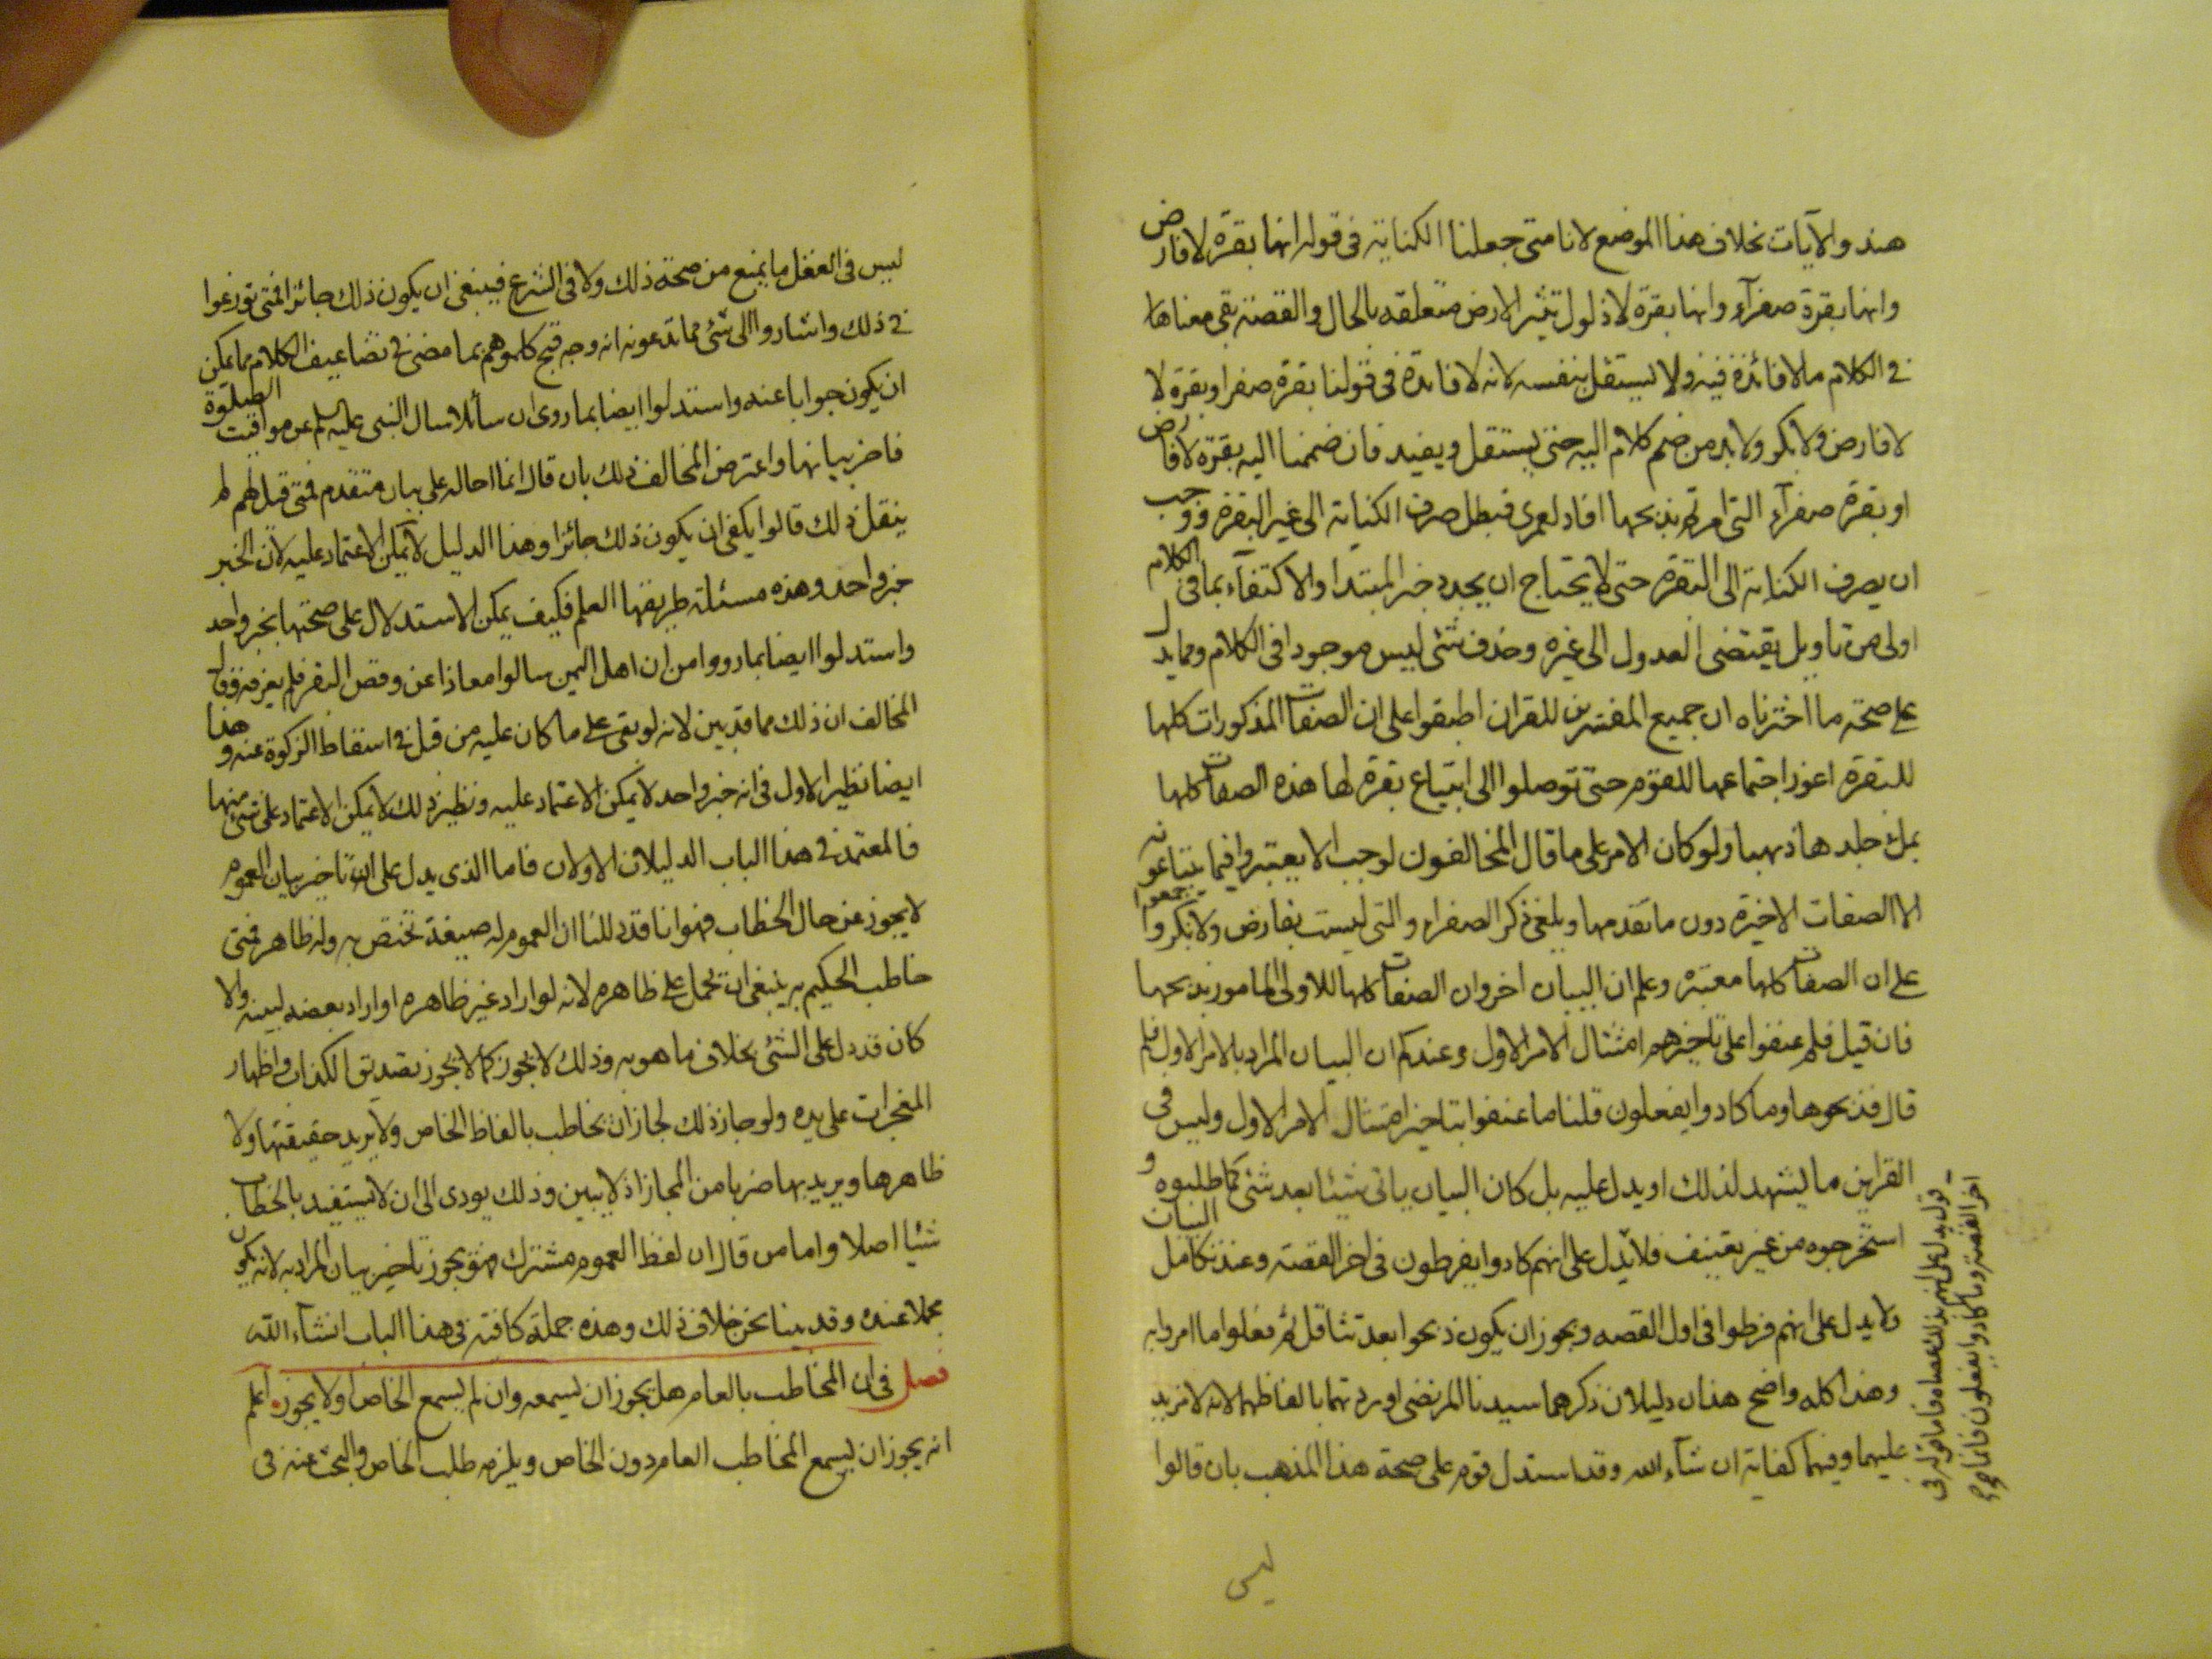 هند والآيات بخلاف هذا الموضع لانا متى جعلنا الكناية فى قوله انها بقرة لا فارض
وانها بقرة صفرآء وانها بقرة لا ذلول تثير الارض متعلقه بالحال والقصة بقى معناها
فى الكلام ما لا فائدة فيه ولا يستقل بنفسه لانه لا فايدة فى قولنا بقرة صفرا وبقرة لا
لا فارض ولا بكر ولا بد من ضم كلام اليه حتى يستقل ويفيد فان ضممنا اليه بقرة لا فارض
او بقرة صفرآء التى امرتم بذبحها افاد لعمرى فبطل صرف الكناية الى غير البقرة ووجب
ان يصرف الكناية الى البقرة حتى لا يحتاج ان يجدد خبر المبتدا والاكتفآء بما فى الكلام
اولى من تاويل يقتضى العدول الى غيره وحذف شئ ليس موجودا فى الكلام ومما يدل
على صحة ما اخترناه ان جميع المفسرين للقران اطبقوا على ان الصفات المذكورات كلها
للبقرة اعوز اجتماعها للقوم حتى توصلوا الى ابتياع بقرة لها هذه الصفات كلها
بملء جلدها ذهبا ولو كان الامر على ما قال المخالفون لوجب الا يعتبروا فيما يبتاعونه
الا الصفات الاخيرة دون ما تقدمها ويلغى ذكر الصفراء والتى ليست بفارض ولا بكر واجمعوا
على ان الصفات كلها معتبرة وعلم ان البيان اخر وان الصفات كلها للاولى المامور بذبحها
فان قيل فلم عنفوا على تاخيرهم امتثال الامر الاول وعندكم ان البيان المراد بالامر الاول فلم
قال فذبحوها وما كادوا يفعلون قلنا ما عنفوا بتاخير امتثال الامر الاول وليس فى
القراين ما يشهد لذلك او يدل عليه بل كان البيان ياتى شيئا بعد شئ كما طلبوه و
استخرجوه من غير تعنيف فلا يدل على انهم كادوا يفرطون فى اخر القصة وعند تكامل البيان
ولا يدل على انهم فرطوا فى اول القصه ويجوز ان يكون ذبحوا بعد تثاقل ثم فعلوا ما امروا به
وهذا كله واضح هذان دليلان ذكرهما سيدنا المرتضى اوردتهما بالفاظهما لانه لا مزيد
عليهما وفيهما كفاية ان شآء الله وقد استدل قوم على صحة هذا المذهب بان قالوا
قول يدل على انهم بذلك عصاه فاما قوله فى
اخر القصة وما كادوا يفعلون فانما
ليس
ليس فى العقل ما يمنع من صحة ذلك ولا فى الشرع فينبغى ان يكون ذلك جائزا فمتى نوزعوا
فى ذلك واشاروا الى شئ مما يدعونه انه وجه قبح كلموهم بما مضى فى تضاعيف الكلام مما يمكن
ان يكون جوابا عنه واستدلوا ايضا بما روى ان سائلا سال النبى عليه السلم عن مواقيت الصلوة
فاخر بيانها واعترض المخالف ذلك بان قال انما احاله على بيان متقدم فمتى قيل لهم لم
ينقل ذلك قالوا يكفى ان يكون ذلك جائزا وهذا الدليل لا يمكن الاعتماد عليه لان الخبر
خبر واحد وهذه مسئلة طريقها العلم فكيف يمكن الاستدلال على صحتها بخبر واحد
واستدلوا ايضا بما رووا من ان اهل اليمن سالوا معاذا عن وقص البقر فلم يعرفه وقال
المخالف ان ذلك مما قد بين لانه لو بقى على ما كان عليه من قبل فى اسقاط الزكوة عنه وهذا
ايضا نظير الاول فى انه خبر واحد لا يمكن الاعتماد عليه ونظير ذلك لا يمكن الاعتماد على شئ منها
فالمعتمد فى هذا الباب الدليلان الاولان فاما الذى يدل على ان تاخير بيان العموم
لا يجوز عن حال الخطاب فهو انا قد دللنا ان العموم له صيغة تختص به وله ظاهر فمتى
خاطب الحكيم به ينبغى ان تحمل على ظاهره لانه لو اراد غير ظاهره او اراد بعضه لبينه والا
كان قد دل على الشئ بخلاف ما هو به وذلك لا يجوز كما لا يجوز تصديق الكذاب واظهار
المعجزات على يده ولو جاز ذلك لجاز ان يخاطب بالفاظ الخاص ولا يريد حقيقتها ولا
ظاهرها ويريد بها ضربا من المجاز اذ لا يبين وذلك يودى الى ان لا يستفيد بالخطاب
شيئا اصلا واما من قال ان لفظ العموم مشترك فهو يجوز تاخير بيان المراد به لانه يكون
مجملا عنده وقد بينا نحن خلاف ذلك وهذه جملة كافية فى هذا الباب انشآء الله
فصل فى ان المخاطب بالعام هل يجوز ان يسمعه وان لم يسمع الخاص او لا يجوز اعلم
انه يجوز ان يسمع المخاطب العام دون الخاص ويلزمه طلب الخاص والبحث عنه فى